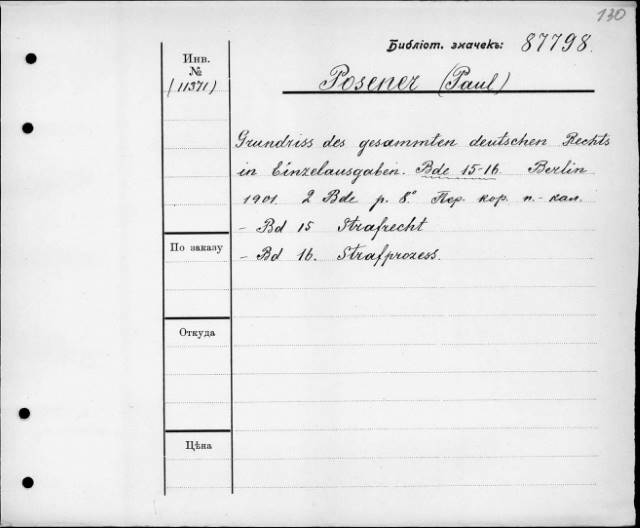 130
Библіот. значекъ: 87798.
Инв.
№
(11371)
Posener (Paul)
Grundriss des gesammten deutschen Rechts
in Einzelausgaben. Bde 15-16 Berlin
1901. 2 Bde p. 8° Пер. кор. п.-кал.
- Bd 15 Strafrecht
- Bd 16. Strafprozess.
По заказу
Откуда
Цѣна